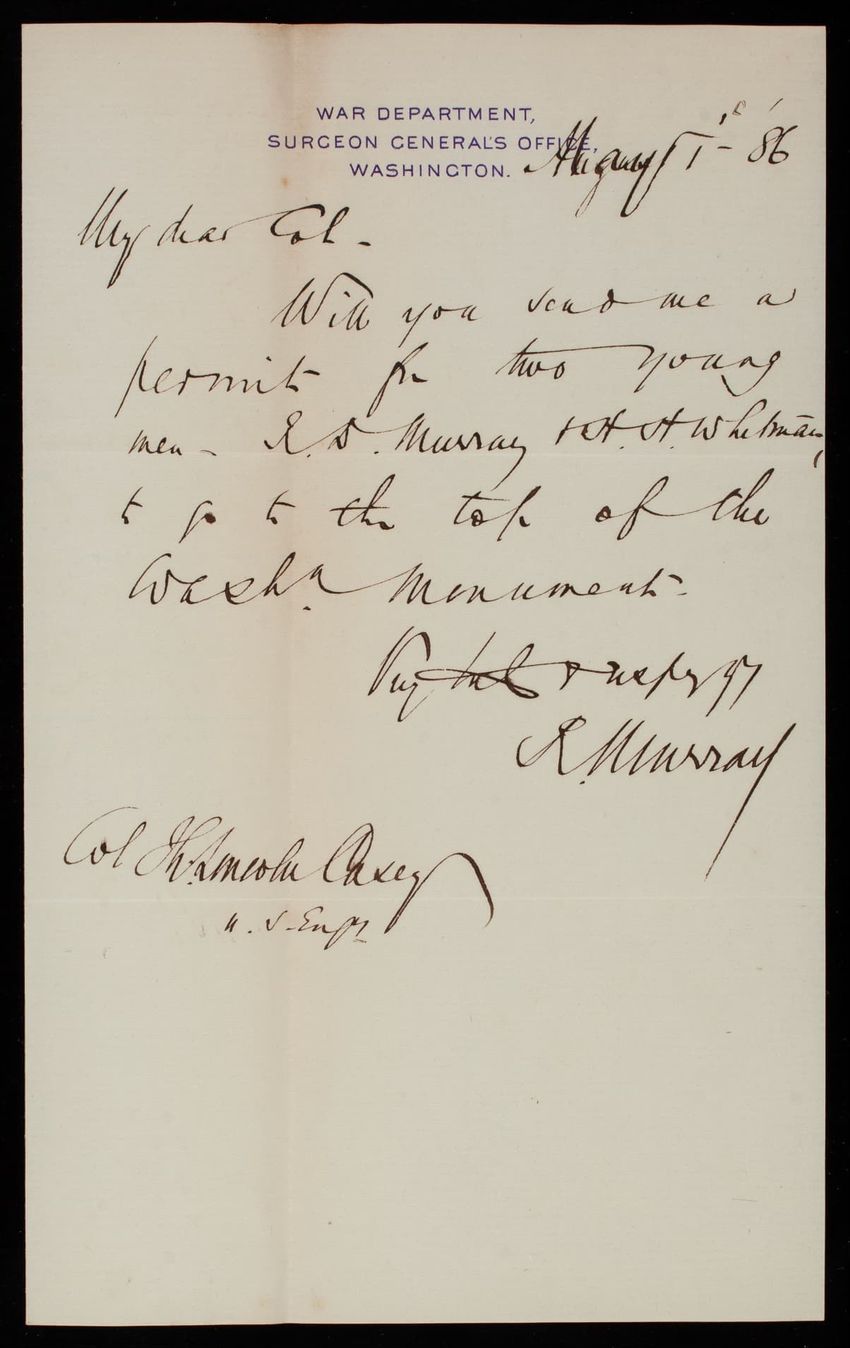 WAR DEPARTMENT,
SURGEON GENERAL'S OFFICE,
WASHINGTON. August 1st '86
My dear Col -
Will you send me a
permit for two young
men - R. D. Murray & H. H. Whitman,
to go to the top of the
Washn Monument -
Very truly & respy yr
R. Murray
Col Th. Lincoln Casey
U. S. Engrs